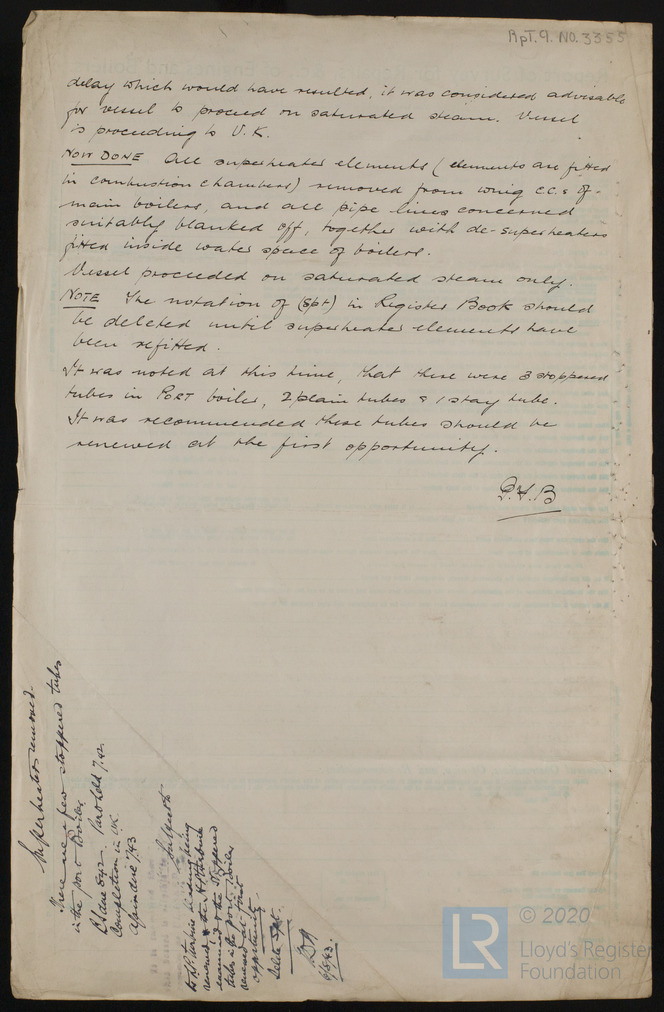 RPT. 9. NO. 3355
delay which would have resulted, it was considered advisable
for vessel to proceed on saturated steam. Vessel
is proceeding to U.K.
NOW DONE All superheater elements (elements are fitted
in combustion chambers) removed from wing c.c.s of
main boilers, and all pipe lines concerned
suitably blanked off, together with de-superheaters
fitted inside water space of boilers.
Vessel proceeded on saturated steam only.
NOTE The notation of (spt) in Register Book should
be deleted until superheater elements have
been refitted.
It was noted at this time, that there were 3 stopped
tubes in PORT boiler, 2 plain tubes & 1 stay tube.
It was recommended these tubes should be
renewed at the first opportunity.
P.H.B
Superheaters removed.
There are a few stopped tubes
in the port Boiler.
Completion in UK
again due 7/43
Subject to
L.P. turbine blading being
renewed & the H.P. turbine
examined & the stopped
tubes in the port boiler
renewed at first
opportunity.
Delete Spt.
6/5/43
© 2020
Lloyd's Register
Foundation
LR